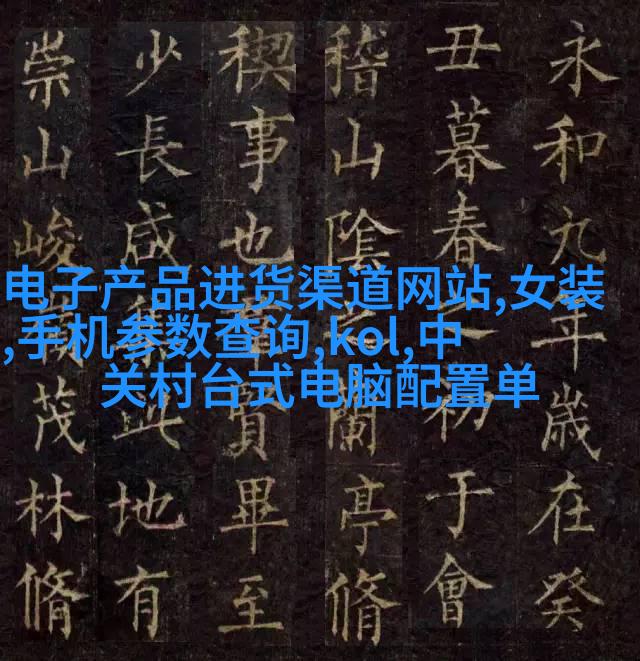 永和九年歲在癸
丑暮春之初于會
稽山陰之蘭亭脩
稧事也羣賢畢至
少長咸集此地有
崇山峻領茂林脩
电子产品进货渠道网站,女装
,手机参数查询,kol,中
关村台式电脑配置单